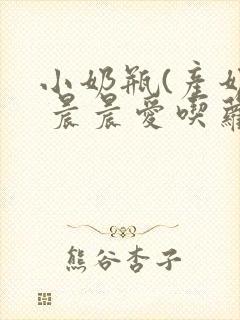 小奶瓶(產奶
晨晨愛喫蘿
熊谷杏子